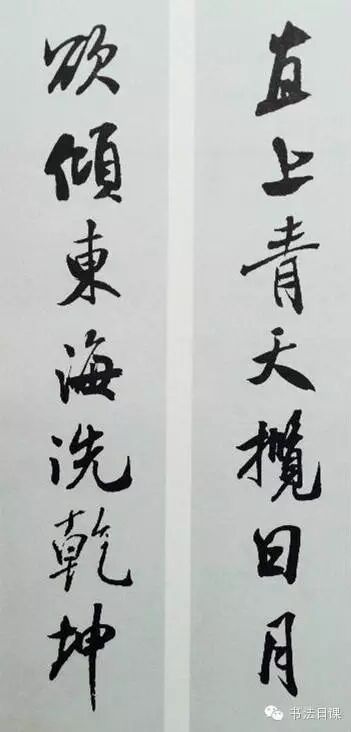 直上青天攬日月
欲傾東海洗乾坤
书法日课